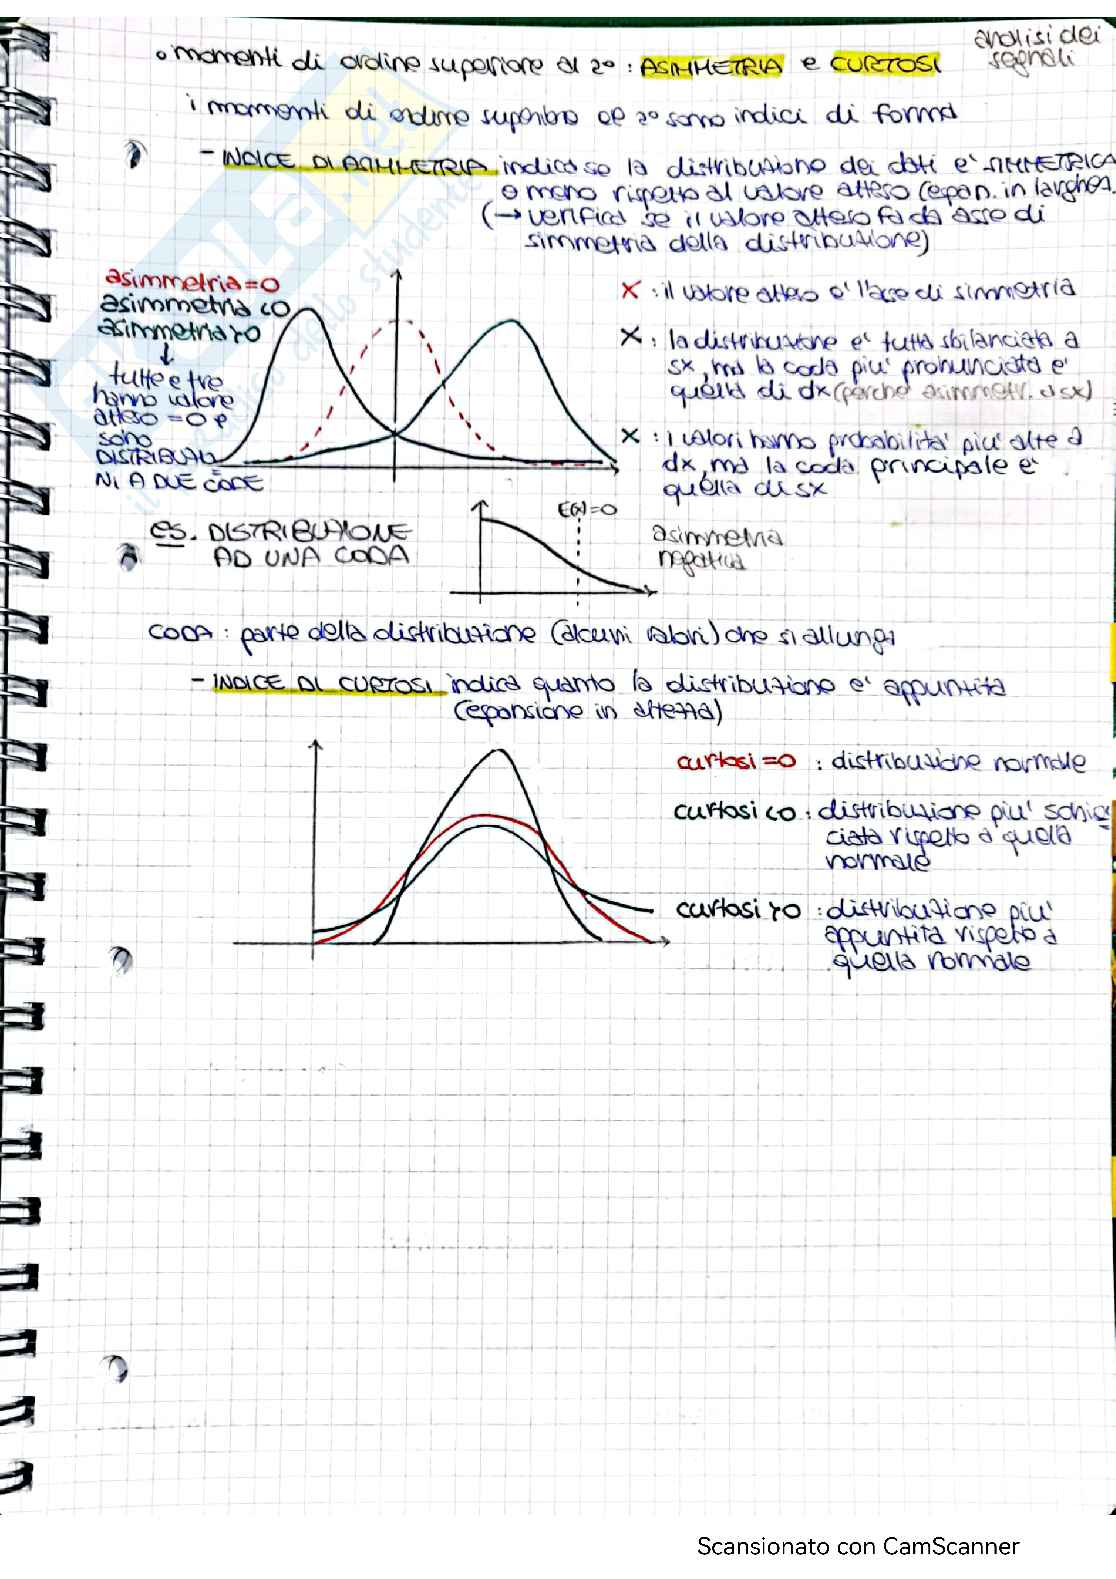 analisi dei
segnali
• momenti di ordine superiore al 2° : ASIMMETRIA e CURTOSI
i momenti di ordine superiore al 2° sono indici di forma
- INDICE DI ASIMMETRIA indica se la distribuzione dei dati e' SIMMETRICA
o meno rispetto al valore atteso (espan. in larghez.
(→ verifica se il valore atteso fa da asse di
simmetria della distribuzione)
asimmetria=0
asimmetria <0
asimmetria >0
↓
tutte e tre
hanno valore
atteso =0 e
sono
DISTRIBUZIO
NI A DUE CODE
X : il valore atteso e' l'asse di simmetria
X : la distribuzione e' tutta sbilanciata a
sx, ma la coda piu' pronunciata e'
quella di dx (perche' asimmetr. a sx)
X : i valori hanno probabilita' piu' alte a
dx, ma la coda principale e'
quella di sx
es. DISTRIBUZIONE
AD UNA CODA
E(x)=0
asimmetria
negativa
CODA : parte della distribuzione (alcuni valori) che si allunga
- INDICE DI CURTOSI indica quanto la distribuzione e' appuntita
(espansione in altezza)
curtosi =0 : distribuzione normale
curtosi <0 : distribuzione piu' schiac
ciata rispetto a quella
normale
curtosi >0 : distribuzione piu'
appuntita rispetto a
quella normale
Scansionato con CamScanner